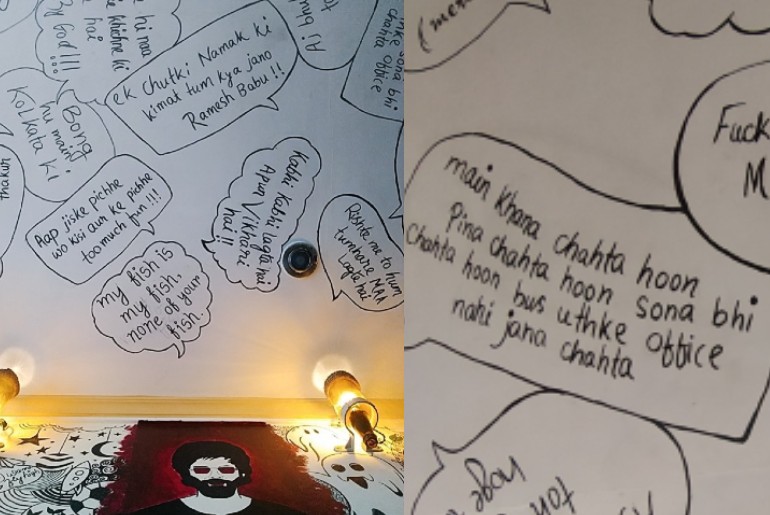 hi naa
khichne ki
hai
my God!!!
ek chutki Namak ki
kimat tum kya jano
Ramesh Babu!!
Bong
hu main
Kolkata ki
thakur
Aap jiske pichhe
wo kisi aur ke pichhe
too much fun!!!
Kabhi Kabhi lagta hai
Apun Vikhari
hai!!
Rishte me to hum
tumhare MAA
lagte hai
my fish is
my fish.
none of your
fish.
sona bhi
chahta office
Fuck
M
main khana chahta hoon
pina chahta hoon sona bhi
chahta hoon bus uthke office
nahi jana chahta
hoge